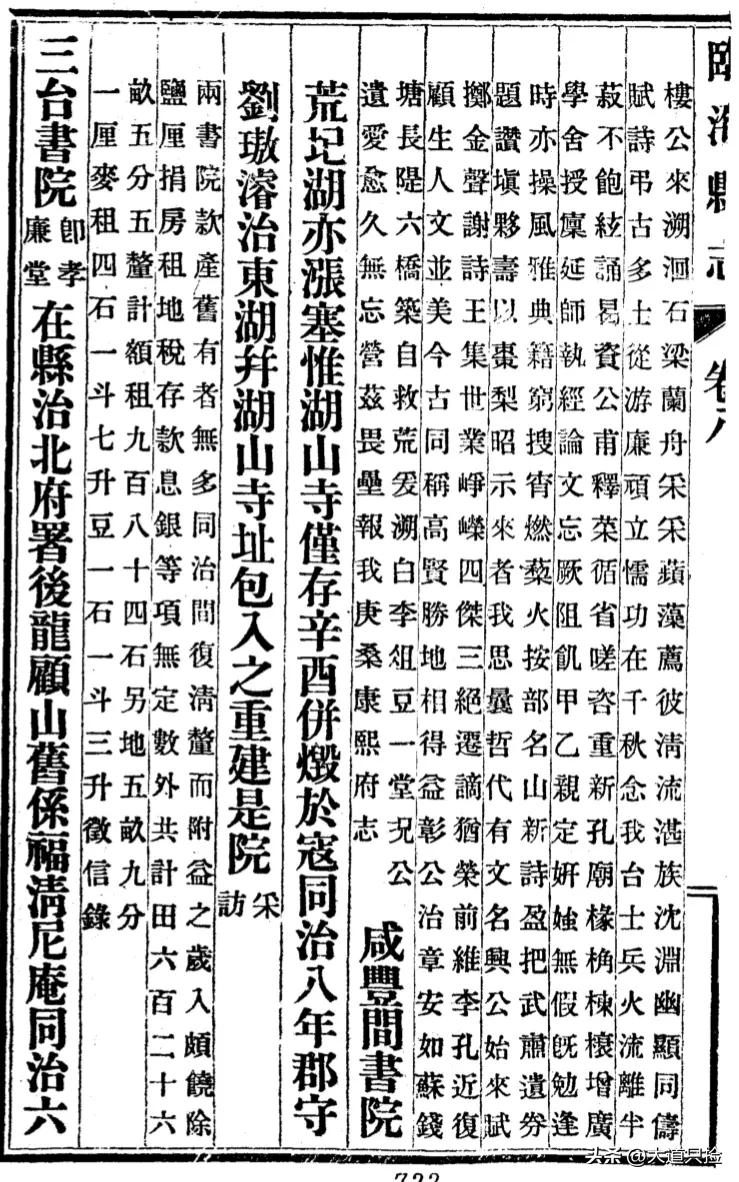 臨海縣志 卷八
樓公來溯洄石梁蘭舟采采蘋藻薦彼淸流湛族沈淵幽顯同儔
賦詩弔古多士從游廉頑立懦功在千秋念我台士兵火流離半
菽不飽絃誦曷資公甫釋菜循省嗟咨重新孔廟椽桷棟榱增廣
學舍授廩延師執經論文忘厥阻飢甲乙親定妍媸無假旣勉逢
時亦操風雅典籍窮搜宵燃藜火按部名山新詩盈把武肅遺劵
題讚塡夥壽以棗梨昭示來者我思曩哲代有文名興公始來賦
擲金聲謝詩王集世業崢嶸四傑三絕遷謫猶榮前維李孔近復
顧生人文並美今古同稱高賢勝地相得益彰公治章安如蘇錢
塘長隄六橋築自救荒爰溯白李俎豆一堂況公
遺愛愈久無忘營茲畏壘報我庚桑康熙府志
咸豐間書院
荒圮湖亦漲塞惟湖山寺僅存辛酉併燬於寇同治八年郡守
劉璈濬治東湖幷湖山寺址包入之重建是院
采訪
兩書院款產舊有者無多同治間復淸釐而附益之歲入頗饒除
鹽厘捐房租地稅存款息銀等項無定數外共計田六百二十六
畝五分五釐計額租九百八十四石另地五畝九分
一厘麥租四石一斗七升豆一石一斗三升徵信錄
三台書院
卽孝
廉堂
在縣治北府署後龍顧山舊係福淸尼庵同治六
722
头条 @大道只捡